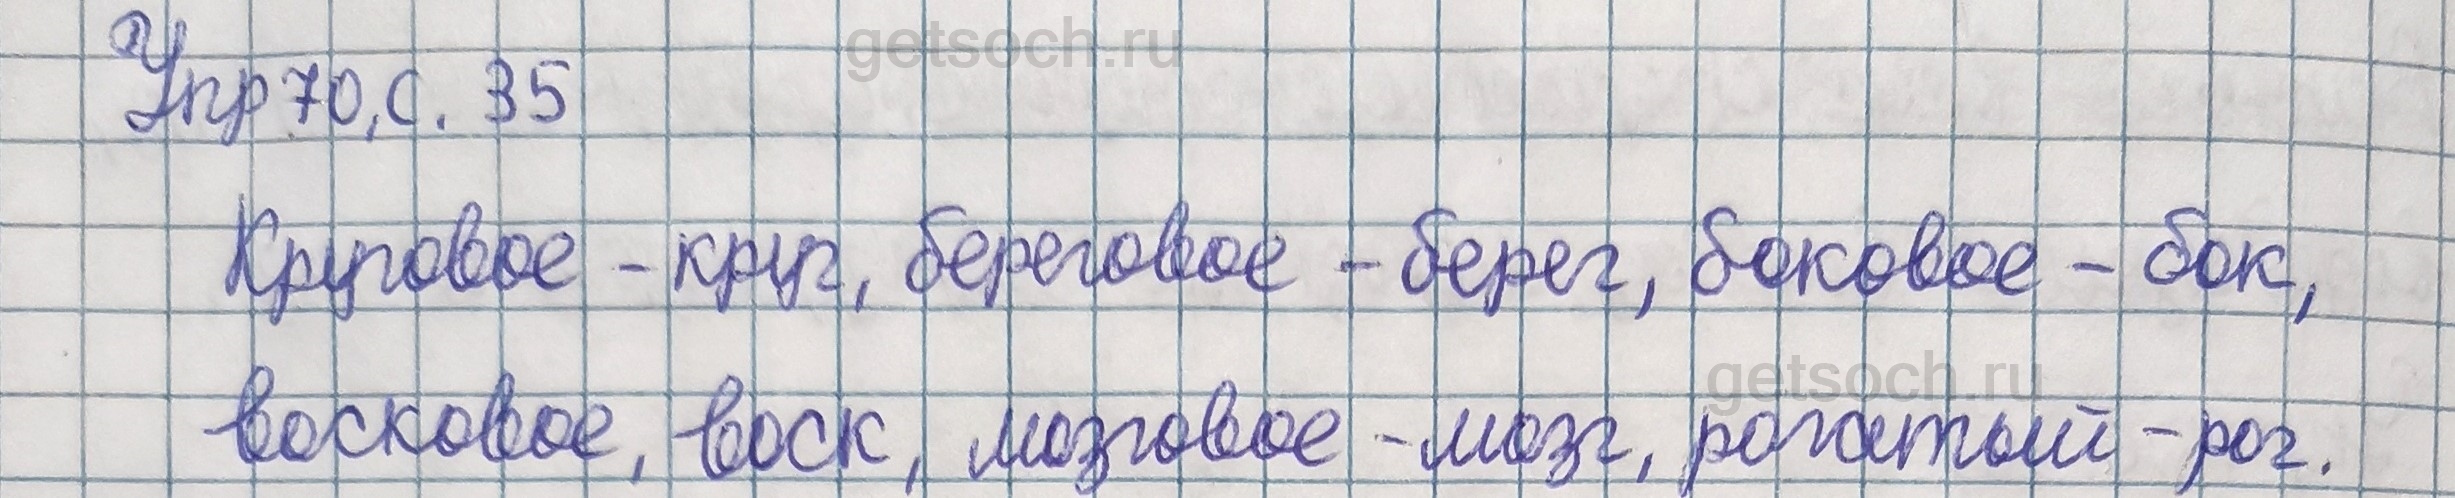 getsoch.ru
Упр 70, с. 35
Круговое - круг, береговое - берег, боковое - бок,
getsoch.ru
восковое, воск, мозговое - мозг, рогатый - рог.